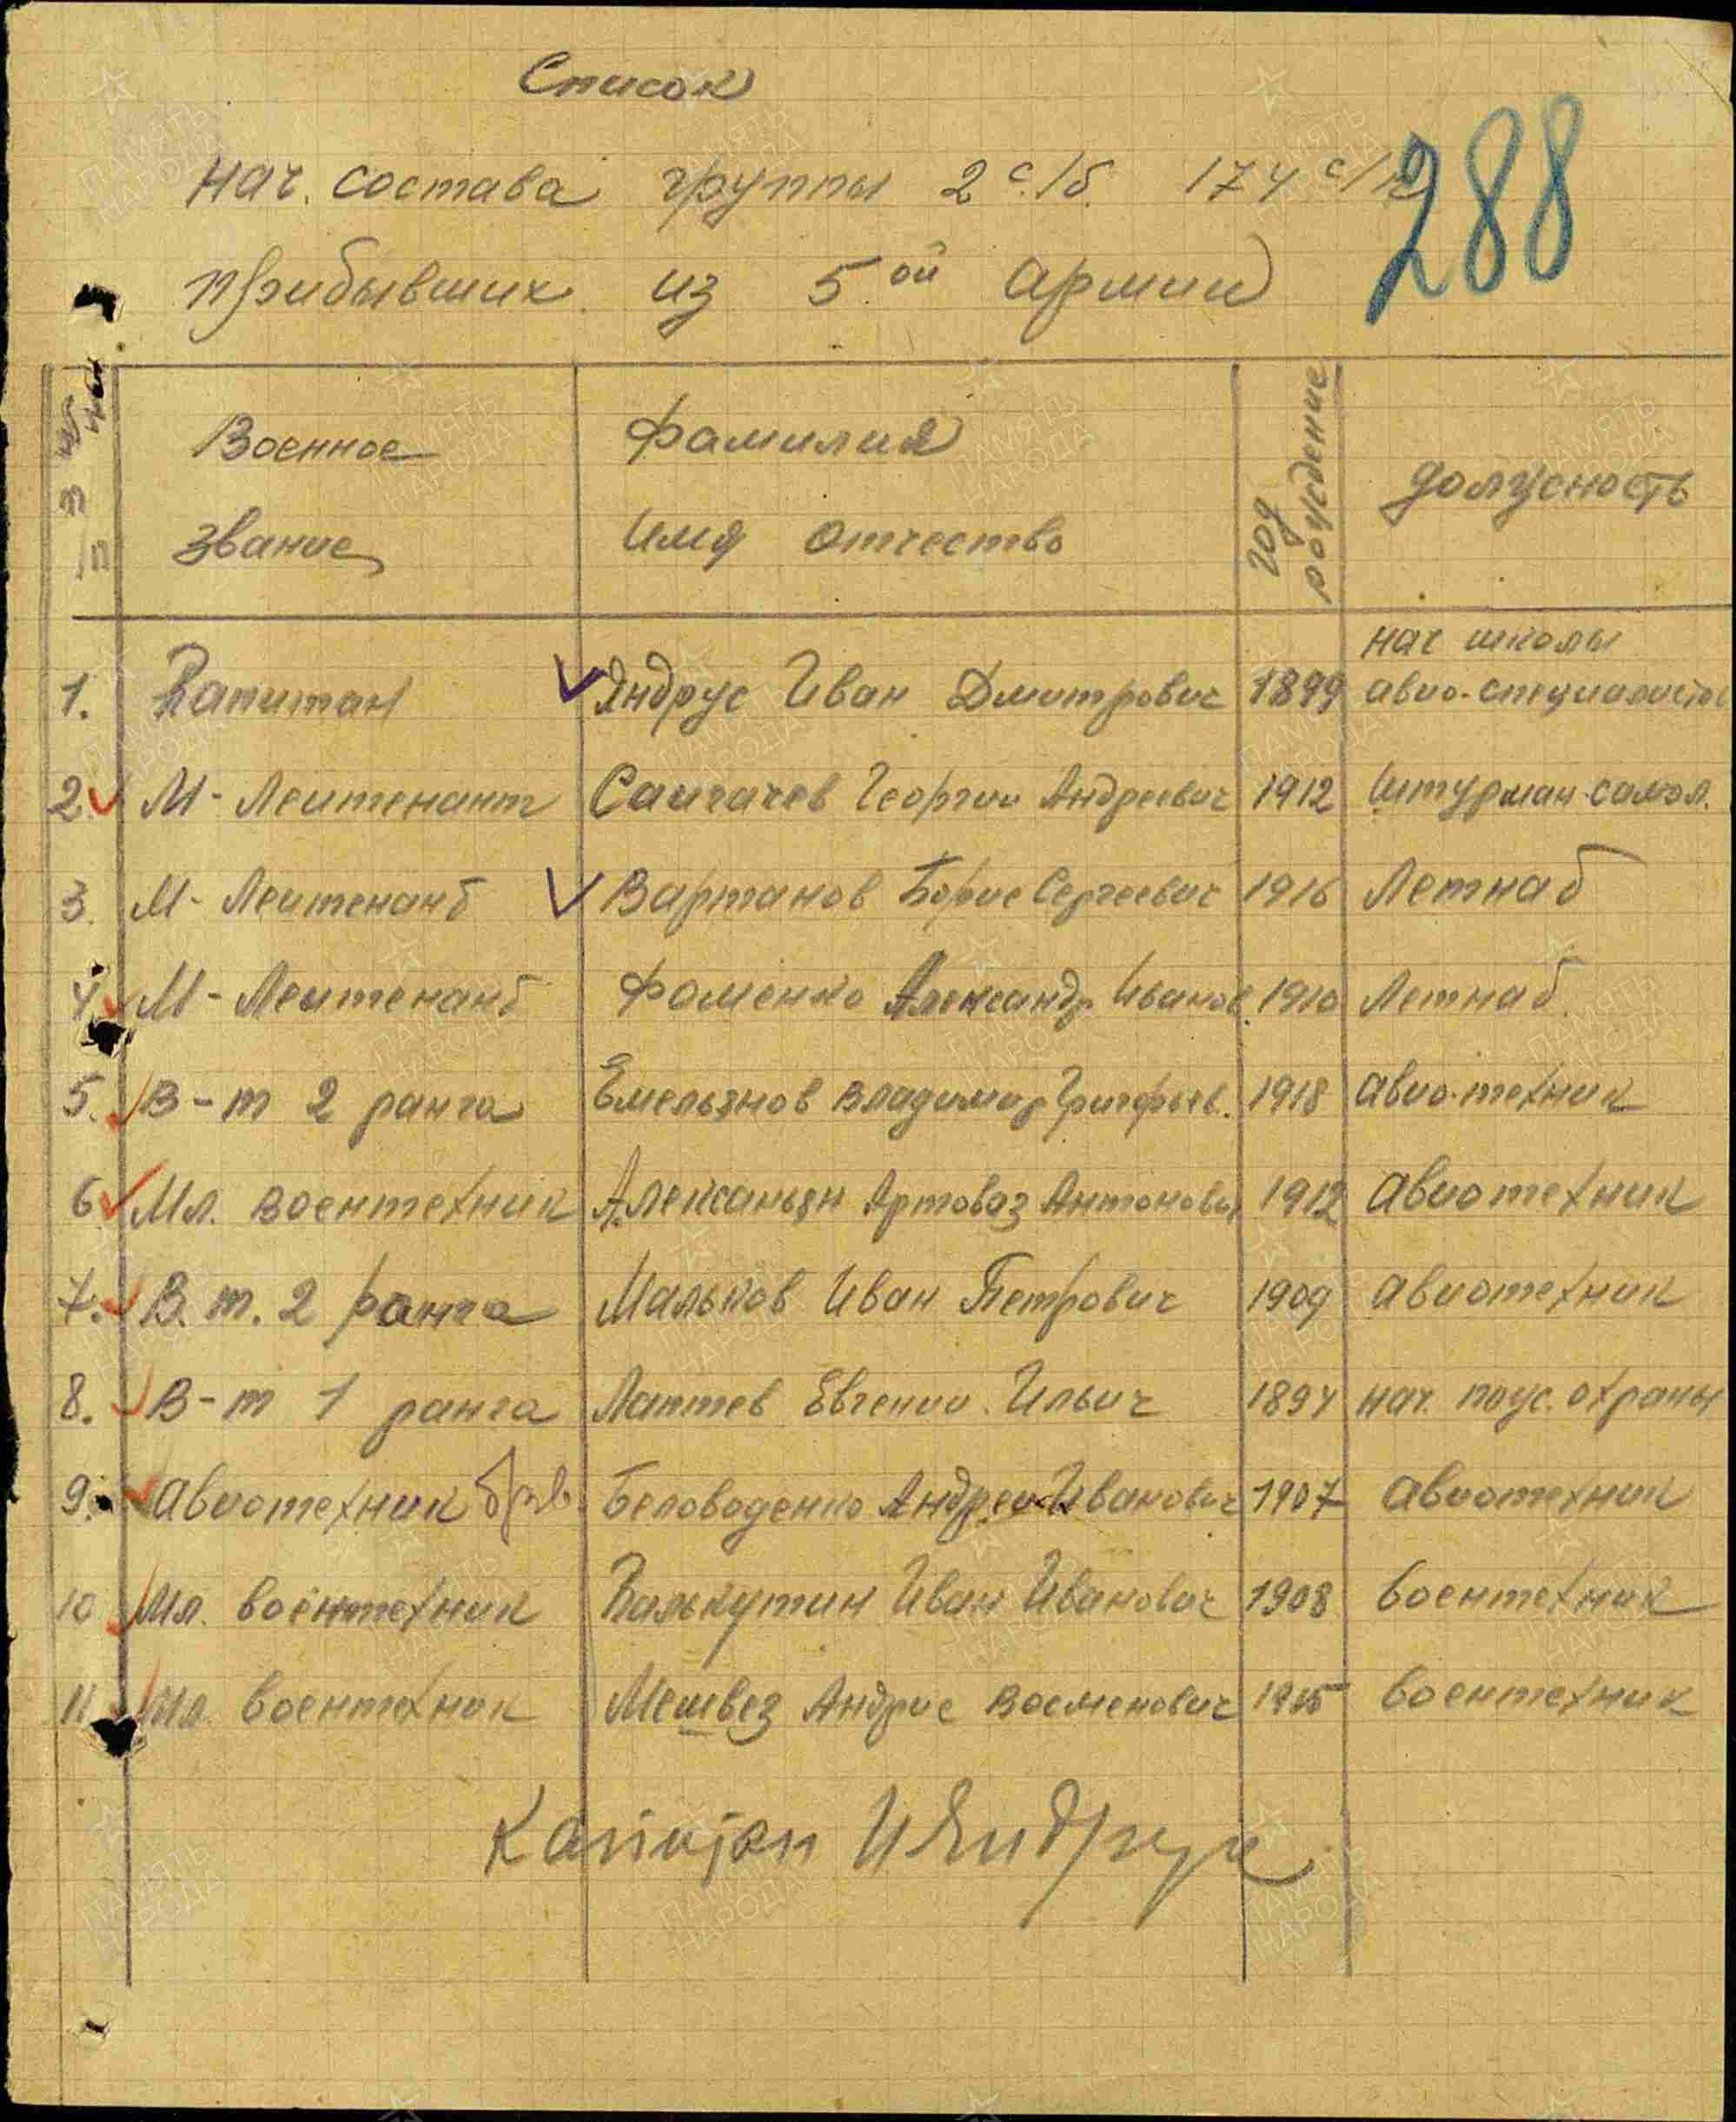 Список
288
нач. состава группы 2 с/б. 174 с/п
прибывших из 5ой армии
Военное звание
Фамилия Имя Отчество
год рождение
должность
1. Капитан Яндрус Иван Дмитрович 1899 нач школы авио-специалистов
2. М-Леитенант Саигачев Георгии Андреевич 1912 Штурман-самол.
3. М-Леитенант Вартанов Борис Сергеевич 1916 Летнаб
4. М-Леитенант Фоменко Александр Иванов. 1910 Летнаб.
5. В-т 2 ранга Емельянов Владимир Григорьев. 1918 авио-техник
6. Мл. воентехник Алексаньян Артоваз Антонович 1912 авиотехник
7. В.т. 2 ранга Мальков Иван Петрович 1909 авиотехник
8. В-т 1 ранга Лаптев Евгении Ильич 1894 нач. пож. охраны
9. авиотехник Беловоденко Андреи Иванович 1907 авиотехник
10 Мл. воентехник Калькутин Иван Иванович 1908 воентехник
11 Мл. воентехник Мешвез Андрис 1915 воентехник
Капитан ИЯндрус
ПАМЯТЬ НАРОДА